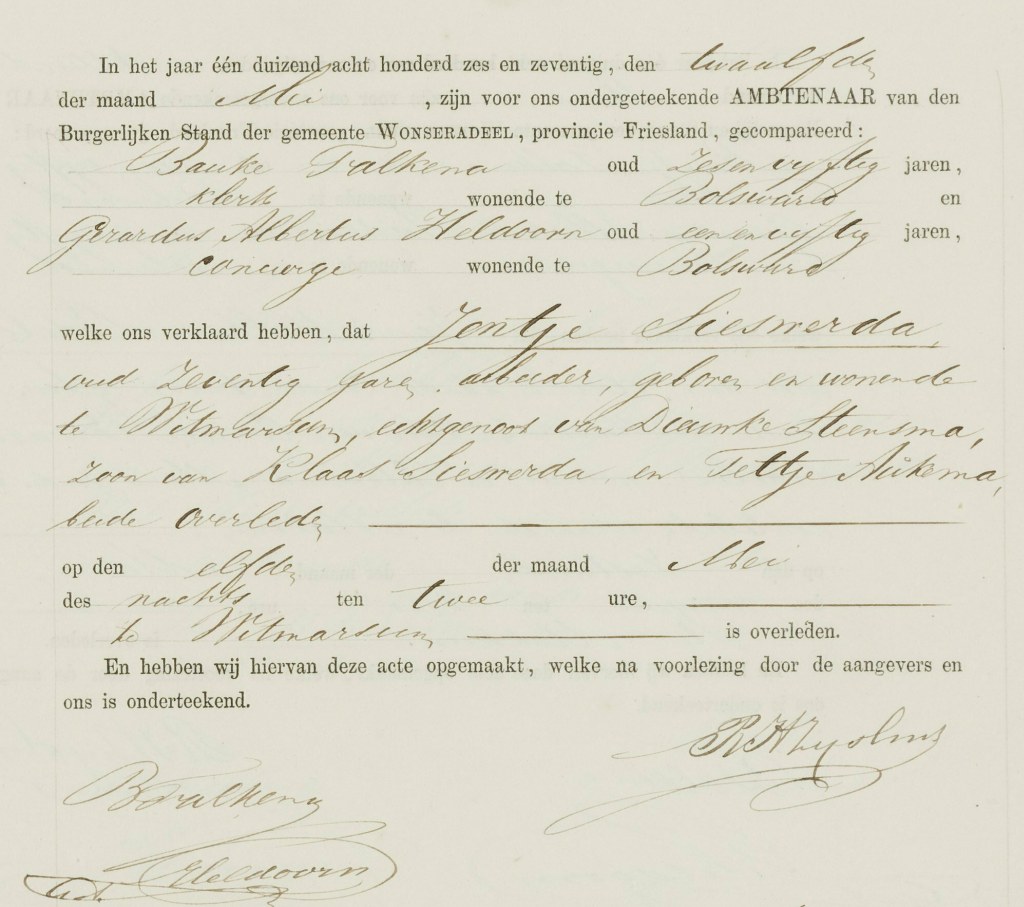 In het jaar één duizend acht honderd zes en zeventig, den twaalfden
der maand Mei , zijn voor ons ondergeteekende AMBTENAAR van den
Burgerlijken Stand der gemeente WONSERADEEL, provincie Friesland, gecompareerd:
Bauke Falkena oud zesenvyftig jaren,
klerk wonende te Bolsward en
Gerardus Albertus Heldoorn oud eenenvyftig jaren,
concierge wonende te Bolsward
welke ons verklaard hebben, dat Jentje Sieswerda,
oud zeventig jaren, arbeider, geboren en wonende
te Witmarsum, echtgenoot van Dieuwke Steensma,
zoon van Klaas Sieswerda, en Tettje Aukema,
beide overleden
op den elfden der maand Mei
des nachts ten twee ure,
te Witmarsum is overleden.
En hebben wij hiervan deze acte opgemaakt, welke na voorlezing door de aangevers en
ons is onderteekend.
B Falkena
Heldoorn